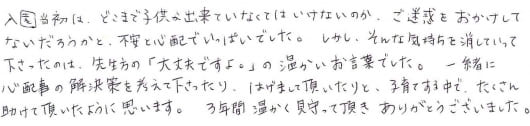 入園当初は、どこまで子供が出来ていなくてはいけないのか、ご迷惑をおかけして
ないだろうかと、不安と心配でいっぱいでした。しかし、そんな気持ちを消していって
下さったのは、先生方の「大丈夫ですよ。」の温かいお言葉でした。一緒に
心配事の解決策を考えて下さったり、はげまして頂いたりと、子育てする中で、たくさん
助けて頂いたように思います。3年間温かく見守って頂きありがとうございました。